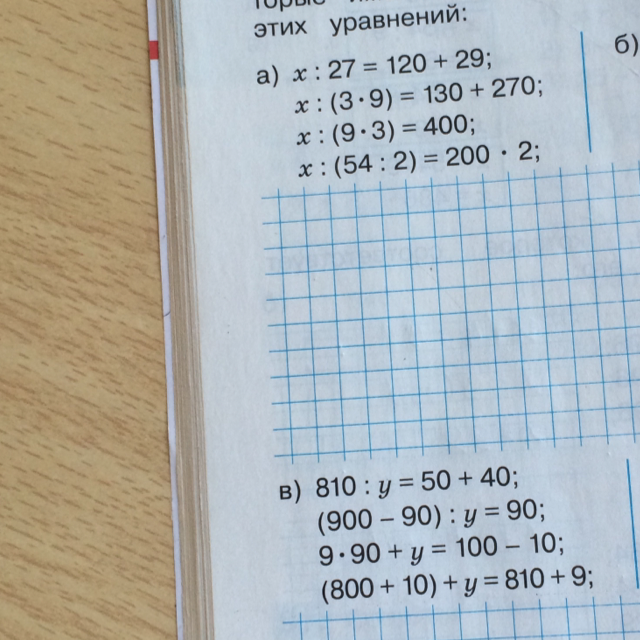 этих уравнений:
а) x : 27 = 120 + 29;
x : (3 · 9) = 130 + 270;
x : (9 · 3) = 400;
x : (54 : 2) = 200 · 2;
б)
в) 810 : y = 50 + 40;
(900 – 90) : y = 90;
9 · 90 + y = 100 – 10;
(800 + 10) + y = 810 + 9;